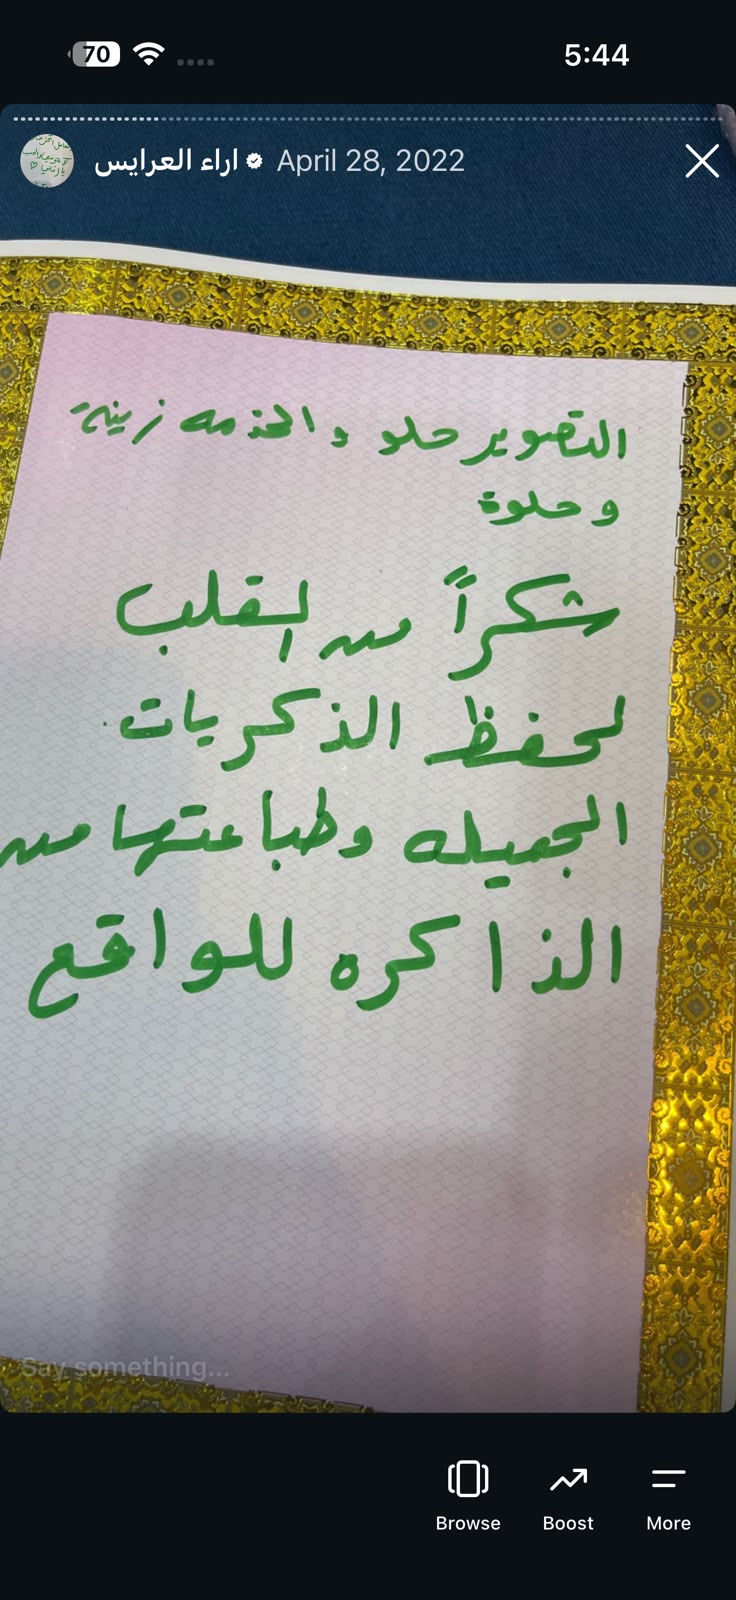 70
5:44
اراء العرايس April 28, 2022
التصوير حلو و الخذمه زينة
و حلوة
شكراً من القلب
لحفظ الذكريات
الجميله وطباعتها من
الذاكره للواقع
Say something...
Browse Boost More